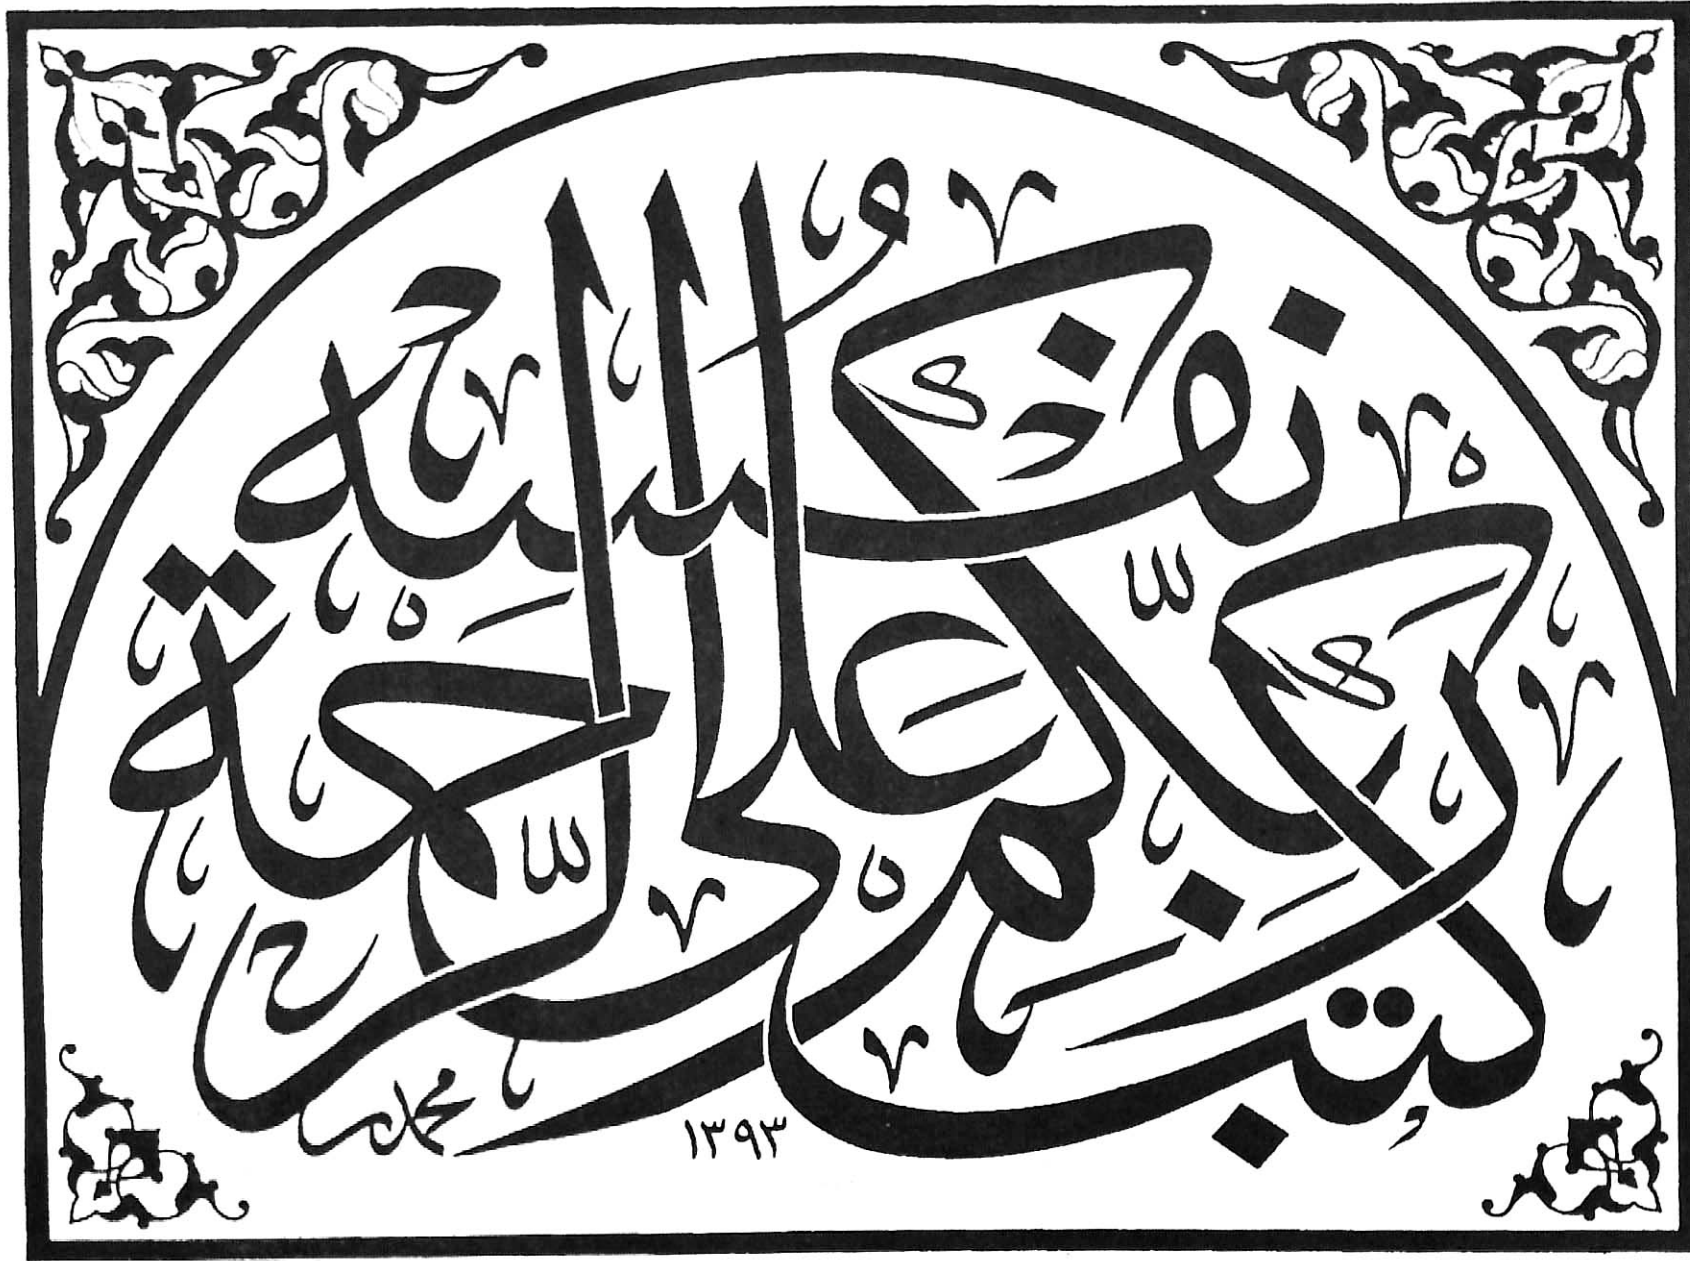 كتب ربكم على نفسه الرحمة
محمد
١٣٩٣